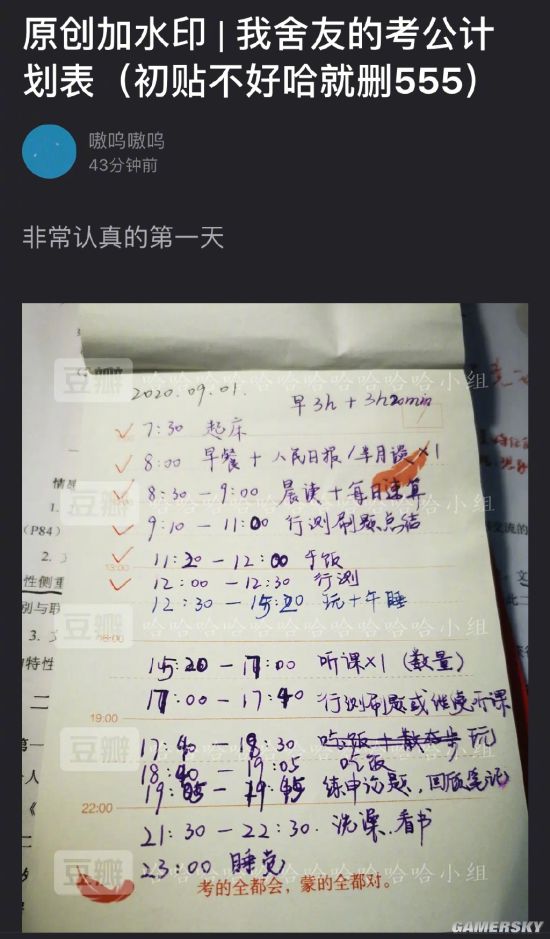 原创加水印 | 我舍友的考公计
划表（初贴不好哈就删555）
嗷呜嗷呜
43分钟前
非常认真的第一天
豆瓣 哈哈哈哈哈哈哈哈哈小组
2020.09.01.
早3h + 3h20min
7:30 起床
8:00 早餐 + 人民日报/半月谈×1
8:30 - 9:00 晨读 + 每日速算
9:10 - 11:00 行测刷题总结
(P84)
11:20 - 12:00 午饭
13:00
12:00 - 12:30 行测
12:30 - 15:20 玩+午睡
16:00
15:20 - 17:00 听课×1 (数量)
17:00 - 17:40 行测刷题或继续听课
19:00
17:40 - 18:30 吃饭 + 散步 玩
18:40 - 19:05 吃饭
19:05 - 19:45 练申论题，回顾笔记
22:00
21:30 - 22:30. 洗澡.看书
23:00 睡觉
考的全都会，蒙的全都对。
GAMERSKY